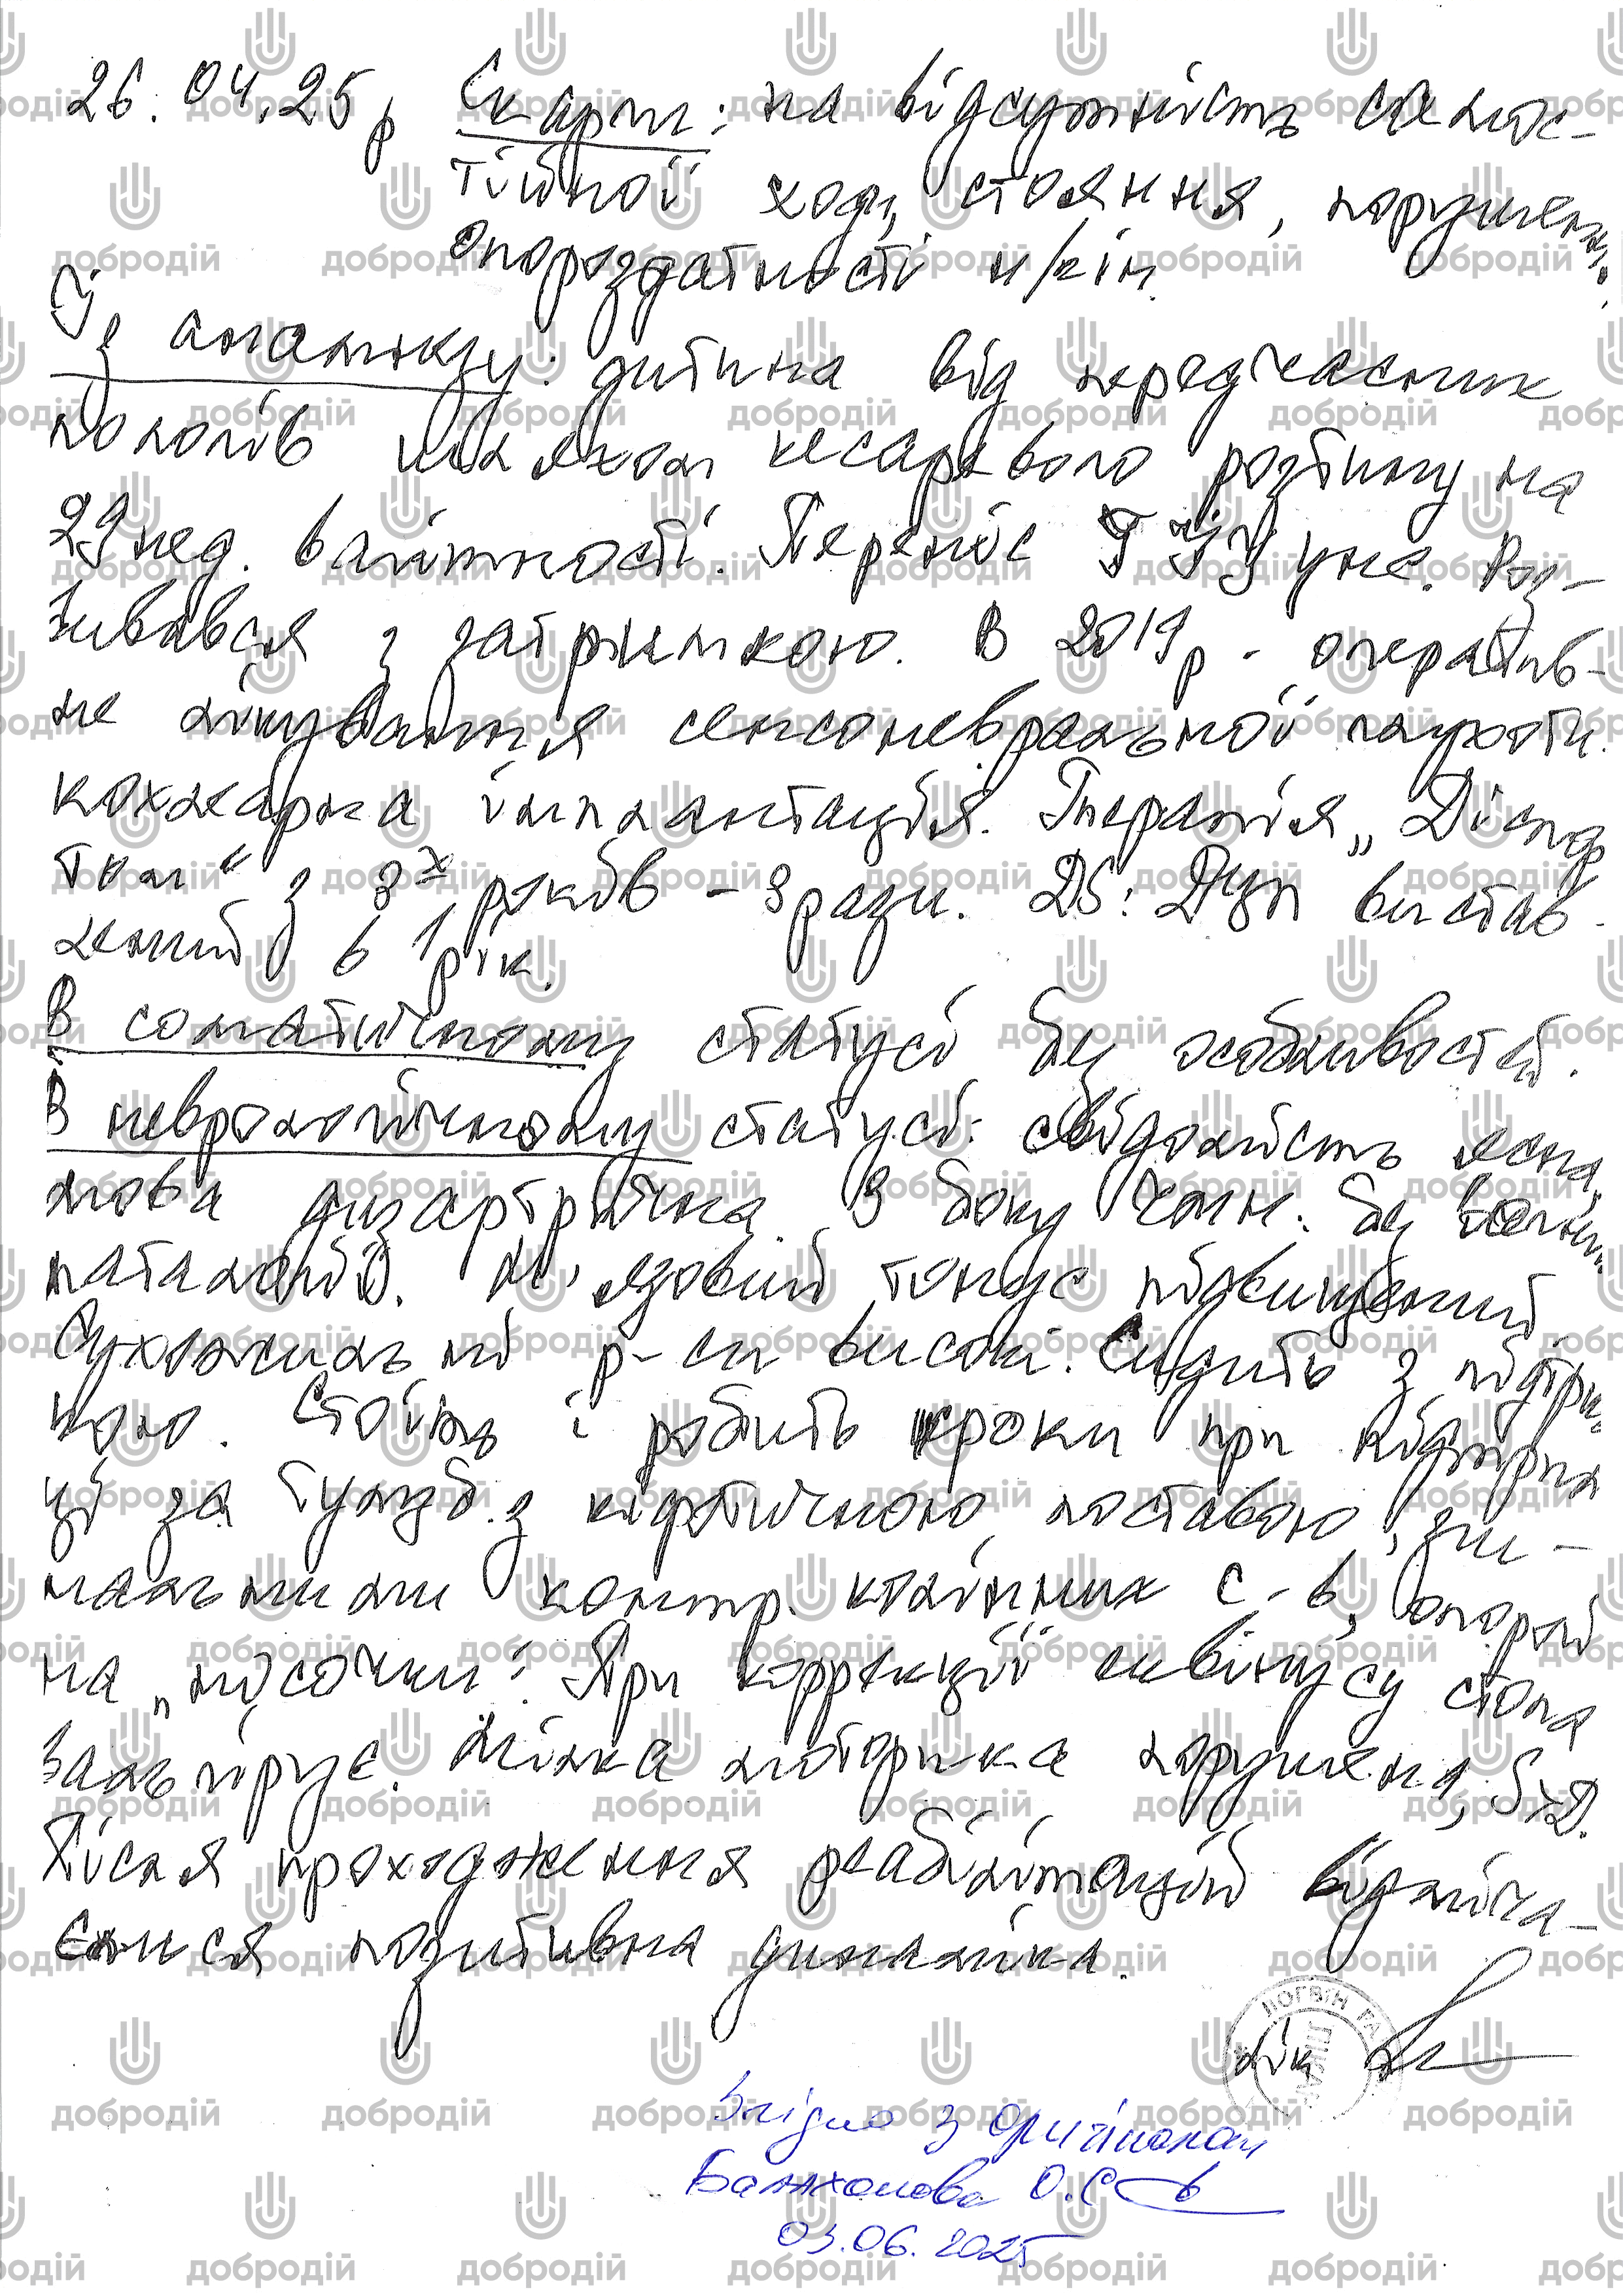 26.04.25р Скарги: на відсутність самос-
тійної ходи, стояння, порушення
опороздатності н/кін.
Із анамнезу: дитина від передчасних
пологів шляхом кесаревого розтину на
29 нед. вагітності. Переніс ГІУ цнс. Роз-
вивався з затримкою. В 2019р - оператив-
не лікування сенсоневральної глухоти.
кохлеарна імплантація. Терапія „Діспор
том" з 3х років - 3 рази. DS: ДЦП вистав-
лений в 1 рік.
В соматичному статусі без особливостей.
В неврологічному статусі: свідомість ясна,
мова дизартрична. З боку чмн. без
паталогії. М'язовий тонус підвищений
Сухожильні р-си високі. Сидить з підтрим
кою. Стоїть і робить кроки при підтрим
ці за тулуб. з кіфотичною поставою,
контр. колінних с-в, опорой
на „носочки". При коррекції еквінусу стопа
вальгірує. Мілка моторика порушена, S>D.
Після проходження реабілітацій відміча-
ється позитивна динаміка.
ЛОГВІН ГА
лік
Згідно з оригіналом
О.С
03.06.2025
добродій